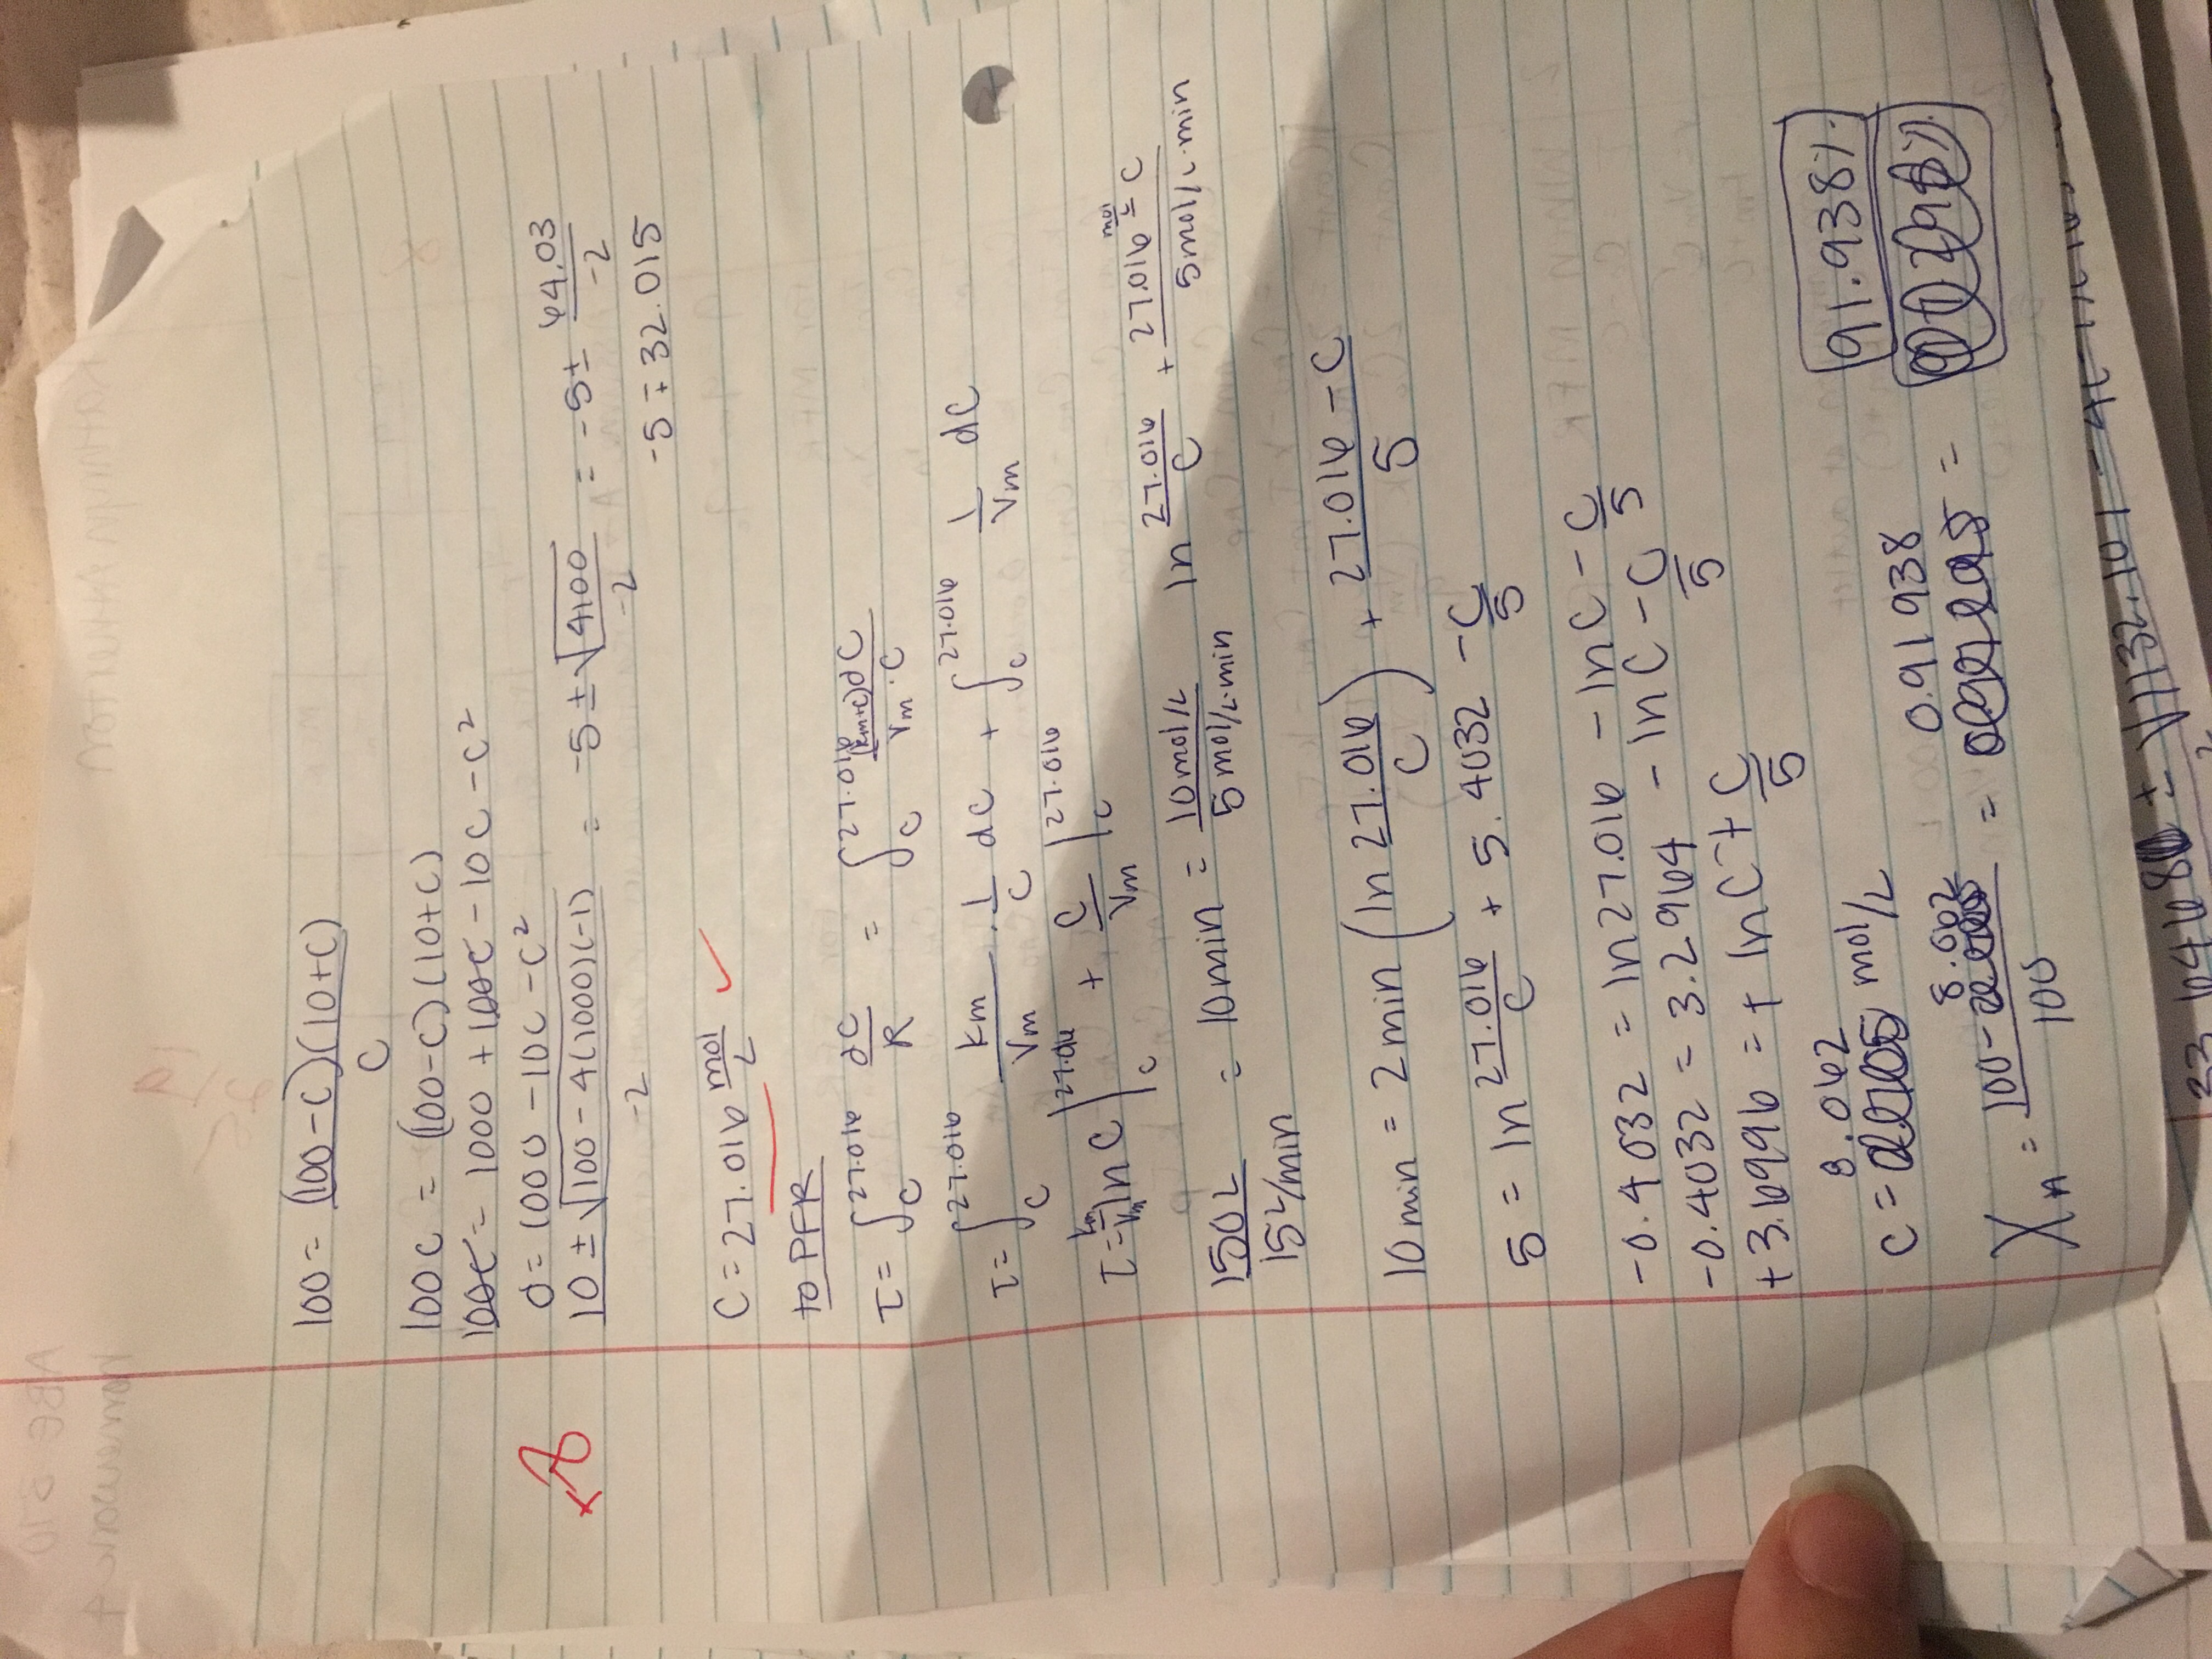 100 = (100-C)(10+C) / C
100C = (100-C)(10+C)
100C = 1000 + 100C - 10C - C²
0 = 1000 - 10C - C²
+8
10 ± √100 - 4(1000)(-1) / -2 = -5 ± √4100 / -2 = -5 ± 64.03 / -2
-5 ∓ 32.015
C = 27.016 mol/L ✓
to PFR
τ = ∫_C^27.016 dC/R = ∫_C^27.016 (km+C)dC / Vm · C
τ = ∫_C^27.016 km/Vm · 1/C dC + ∫_C^27.016 1/Vm dC
τ = km/Vm ln C |_C^27.016 + C/Vm |_C^27.016
150L / 15 L/min = 10 min = 10 mol/L / 5 mol/L·min ln 27.016/C + 27.016 mol/L - C / 5 mol/L·min
10 min = 2 min (ln 27.016/C) + 27.016 - C / 5
5 = ln 27.016/C + 5.4032 - C/5
-0.4032 = ln 27.016 - ln C - C/5
-0.4032 = 3.2964 - ln C - C/5
+3.6996 = + ln C + C/5
C = 8.062 mol/L
XA = 100 - 8.062 / 100 = 0.91938 = 91.938%